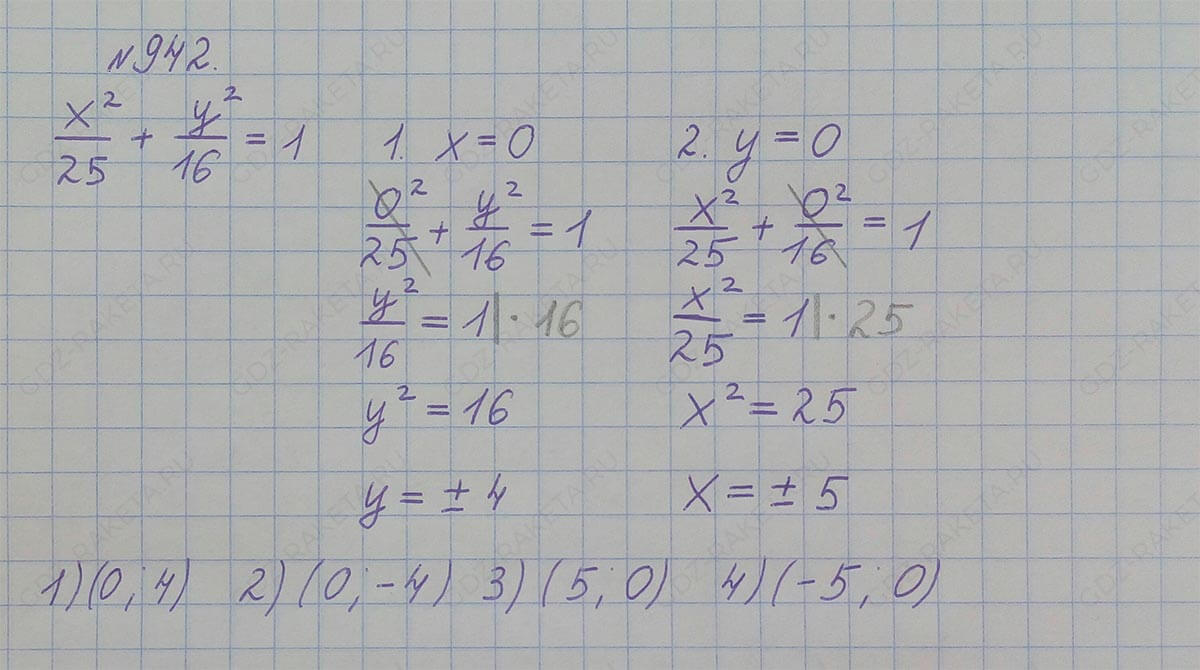 №942.
x²/25 + y²/16 = 1
1. x = 0
0²/25 + y²/16 = 1
y²/16 = 1 | · 16
y² = 16
y = ± 4
2. y = 0
x²/25 + 0²/16 = 1
x²/25 = 1 | · 25
x² = 25
x = ± 5
1) (0; 4) 2) (0; -4) 3) (5; 0) 4) (-5; 0)
GDZ-RAKETA.RU